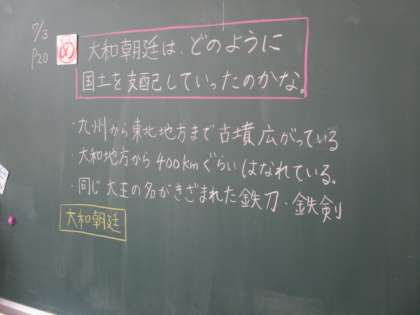 7/3
P20
め
大和朝廷は、どのように
国土を支配していったのかな。
・九州から東北地方まで古墳広がっている
・大和地方から400kmぐらいはなれている。
・同じ大王の名がきざまれた鉄刀・鉄剣
大和朝廷